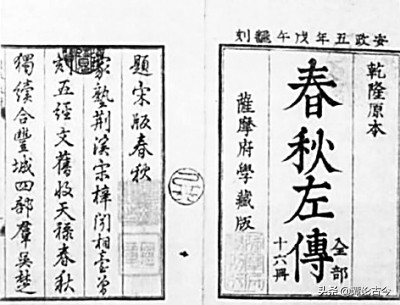 安政五年戊午飜刻
乾隆原本
春秋左傳
全部
十六冊
薩摩府學藏版
題宋版春秋
家塾荆溪宋梓聞相臺曾
刻五經文舊收天祿春秋
獨續合豐城四部羣吳楚
头条 @澜论古今